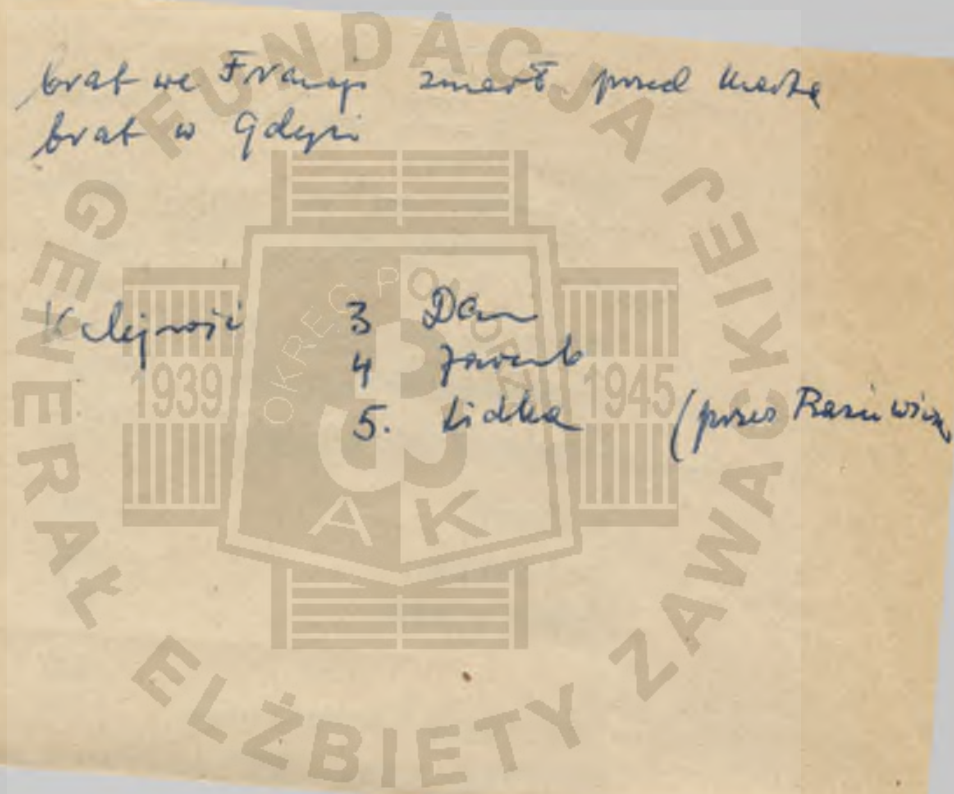 brat we Francji zmarł przed Martą
brat w Gdyni
Kolejność 3 Dan
4 Jacent
5. Lidka (przez
FUNDACJA GENERAŁ ELŻBIETY ZAWACKIEJ
OKRĘG POMORZE
1939 1945
AK